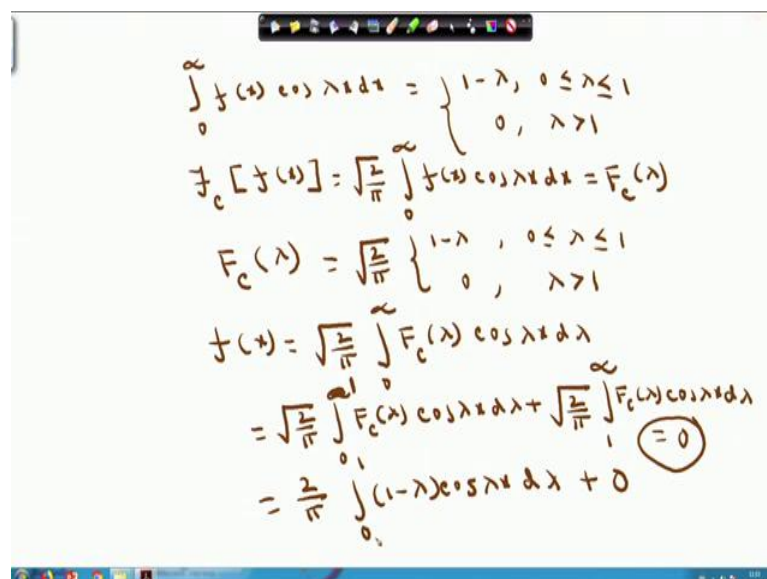 ∫₀^∞ f(x) cos λx dx = { 1-λ, 0 ≤ λ ≤ 1
0, λ>1
F_c [f(x)] = √(2/π) ∫₀^∞ f(x) cos λx dx = F_c(λ)
F_c(λ) = √(2/π) { 1-λ , 0 ≤ λ ≤ 1
0 , λ>1
f(x) = √(2/π) ∫₀^∞ F_c(λ) cos λx dλ
= √(2/π) ∫₀^1 F_c(λ) cos λx dλ + √(2/π) ∫₁^∞ F_c(λ) cos λx dλ
= 0
= 2/π ∫₀^1 (1-λ) cos λx dλ + 0